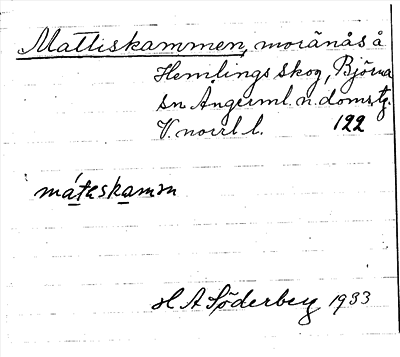 Mattiskammen, moränås å
Hemlings skog, Björna
sn Ångerml. n. domstg.
V. norrl l. 122
mátaskamm
H A Söderberg 1933